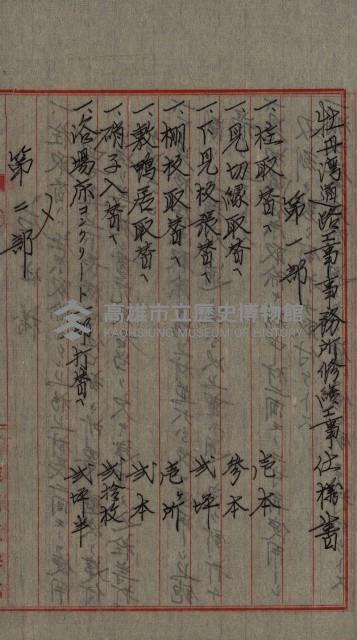 牡丹湾道路工事事務所修繕工事仕様書
第一部
一、柱取替、 壱本
一、見切縁取替、 参本
一、下見板張替、 弐坪
一、棚板取替、 壱ヶ所
一、敷鴨居取替、 弐本
一、硝子入替、 弐拾枚
一、浴場床コンクリート 打替、 弐坪半
〆
第二部
高雄市立歷史博物館
KAOHSIUNG MUSEUM OF HISTORY